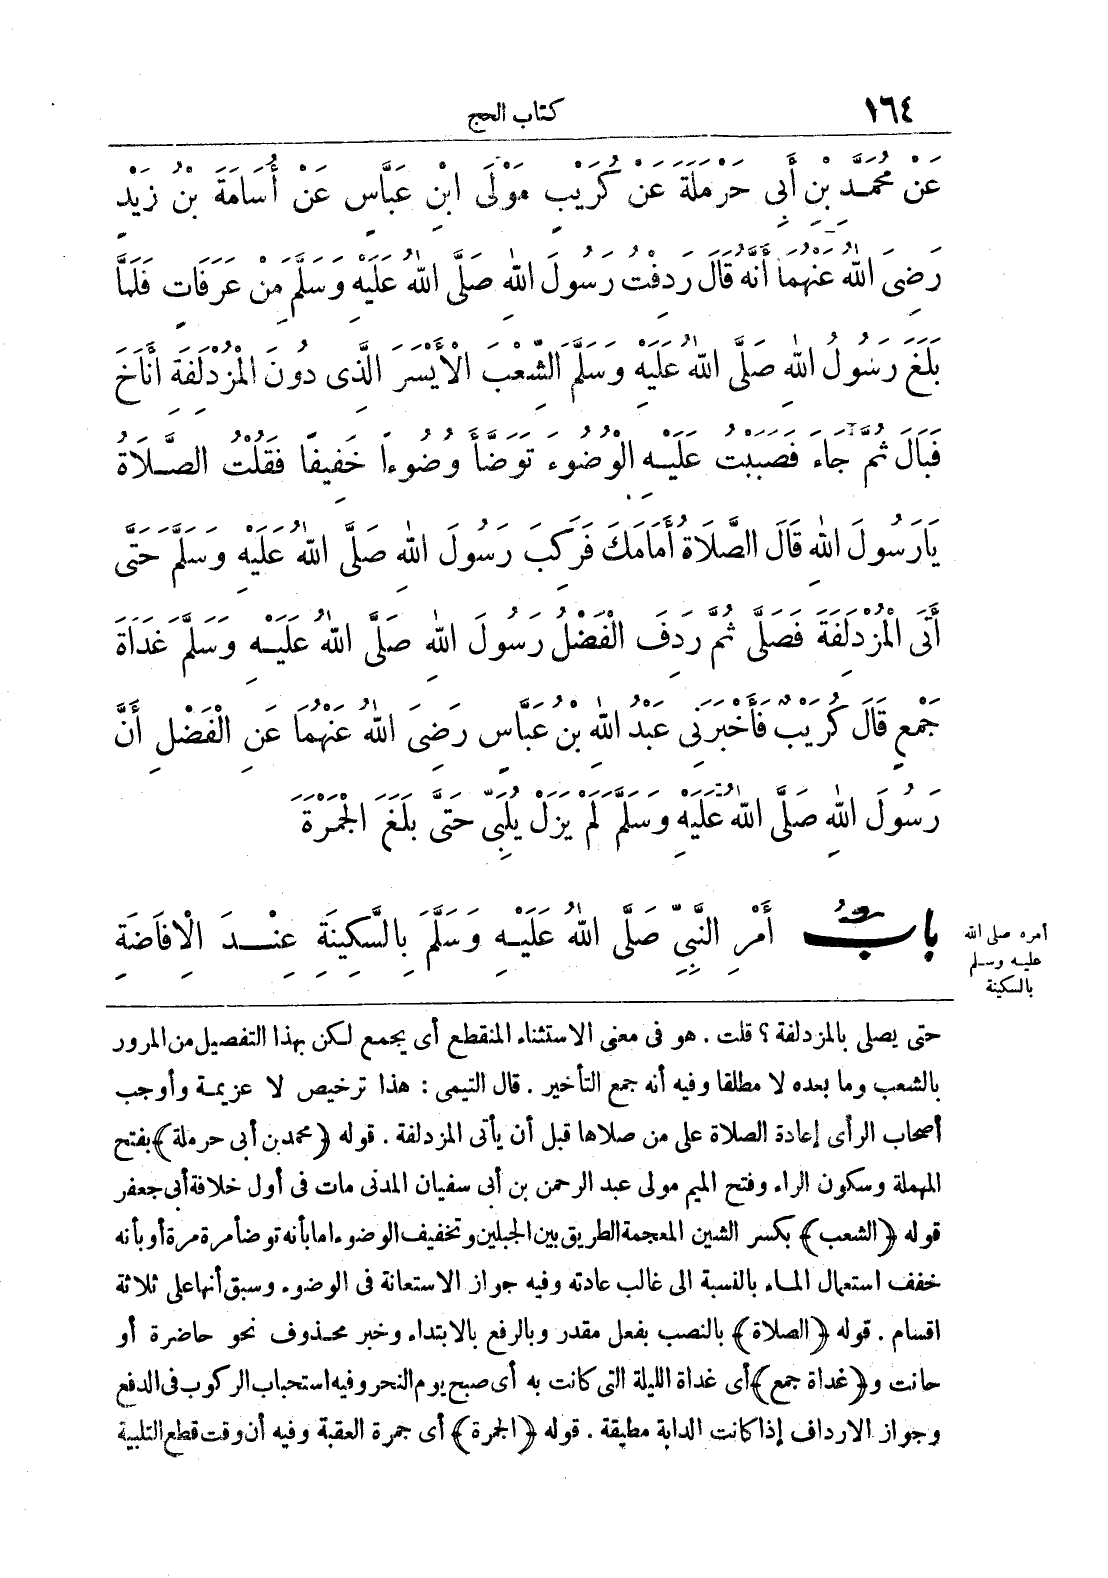 ١٦٤
كتاب الحج
عَنْ مُحَمَّدِ بْنِ أَبِي حَرْمَلَةَ عَنْ كُرَيْبٍ مَوْلَى ابْنِ عَبَّاسٍ عَنْ أُسَامَةَ بْنِ زَيْدٍ
رَضِىَ اللهُ عَنْهُمَا أَنَّهُ قَالَ رَدِفْتُ رَسُولَ اللهِ صَلَّى اللهُ عَلَيْهِ وَسَلَّمَ مِنْ عَرَفَاتٍ فَلَمَّا
بَلَغَ رَسُولُ اللهِ صَلَّى اللهُ عَلَيْهِ وَسَلَّمَ الشِّعْبَ الْأَيْسَرَ الَّذِى دُونَ الْمُزْدَلِفَةِ أَنَاخَ
فَبَالَ ثُمَّ جَاءَ فَصَبَبْتُ عَلَيْهِ الْوَضُوءَ تَوَضَّأَ وُضُوءًا خَفِيفًا فَقُلْتُ الصَّلَاةُ
يَارَسُولَ اللهِ قَالَ الصَّلَاةُ أَمَامَكَ فَرَكِبَ رَسُولَ اللهِ صَلَّى اللهُ عَلَيْهِ وَسَلَّمَ حَتَّى
أَتَى الْمُزْدَلِفَةَ فَصَلَّى ثُمَّ رَدِفَ الْفَضْلُ رَسُولَ اللهِ صَلَّى اللهُ عَلَيْهِ وَسَلَّمَ غَدَاةَ
جَمْعٍ قَالَ كُرَيْبٌ فَأَخْبَرَنِى عَبْدُ اللهِ بْنُ عَبَّاسٍ رَضِىَ اللهُ عَنْهُمَا عَنِ الْفَضْلِ أَنَّ
رَسُولَ اللهِ صَلَّى اللهُ عَلَيْهِ وَسَلَّمَ لَمْ يَزَلْ يُلَبِّى حَتَّى بَلَغَ الْجَمْرَةَ
بابُ أَمْرِ النَّبِيِّ صَلَّى اللهُ عَلَيْهِ وَسَلَّمَ بِالسَّكِينَةِ عِنْدَ الْإِفَاضَةِ
أمره صلى الله
عليه وسلم
بالسكينة
حتى يصلى بالمزدلفة ؟ قلت . هو فى معنى الاستثناء المنقطع أى يجمع لكن بهذا التفصيل من المرور
بالشعب وما بعده لا مطلقا وفيه أنه جمع التأخير . قال التيمى : هذا ترخيص لا عزيمة وأوجب
أصحاب الرأى إعادة الصلاة على من صلاها قبل أن يأتى المزدلفة . قوله ﴿محمد بن أبى حرملة﴾ بفتح
المهملة وسكون الراء وفتح الميم مولى عبد الرحمن بن أبى سفيان المدنى مات فى أول خلافة أبى جعفر
قوله ﴿الشعب﴾ بكسر الشين المعجمة الطريق بين الجبلين وتخفيف الوضوء اما بأنه توضأ مرة مرة أو بأنه
خفف استعمال الماء بالنسبة الى غالب عادته وفيه جواز الاستعانة فى الوضوء وسبق أنها على ثلاثة
اقسام . قوله ﴿الصلاة﴾ بالنصب بفعل مقدر وبالرفع بالابتداء وخبر محذوف نحو حاضرة أو
حانت و﴿غداة جمع﴾ أى غداة الليلة التى كانت به أى صبح يوم النحر وفيه استحباب الركوب فى الدفع
وجواز الارداف إذا كانت الدابة مطيقة . قوله ﴿الجمرة﴾ أى جمرة العقبة وفيه أن وقت قطع التلبية